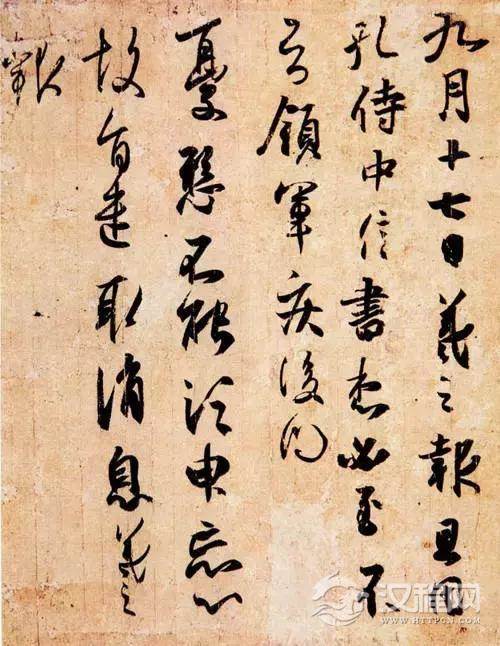 九月十七日羲之報且因
孔侍中信書想必至不
知領軍疾後問
憂懸不能須臾忘心
故旨遣取消息羲之
報
汉程网
WWW.HTTPCN.COM